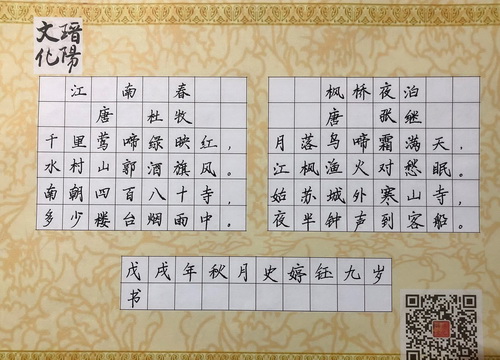 瑨陽
文化
江南春
唐 杜牧
千里莺啼绿映红，
水村山郭酒旗风。
南朝四百八十寺，
多少楼台烟雨中。
枫桥夜泊
唐 张继
月落乌啼霜满天，
江枫渔火对愁眠。
姑苏城外寒山寺，
夜半钟声到客船。
戊戌年秋月史婷钰九岁
书